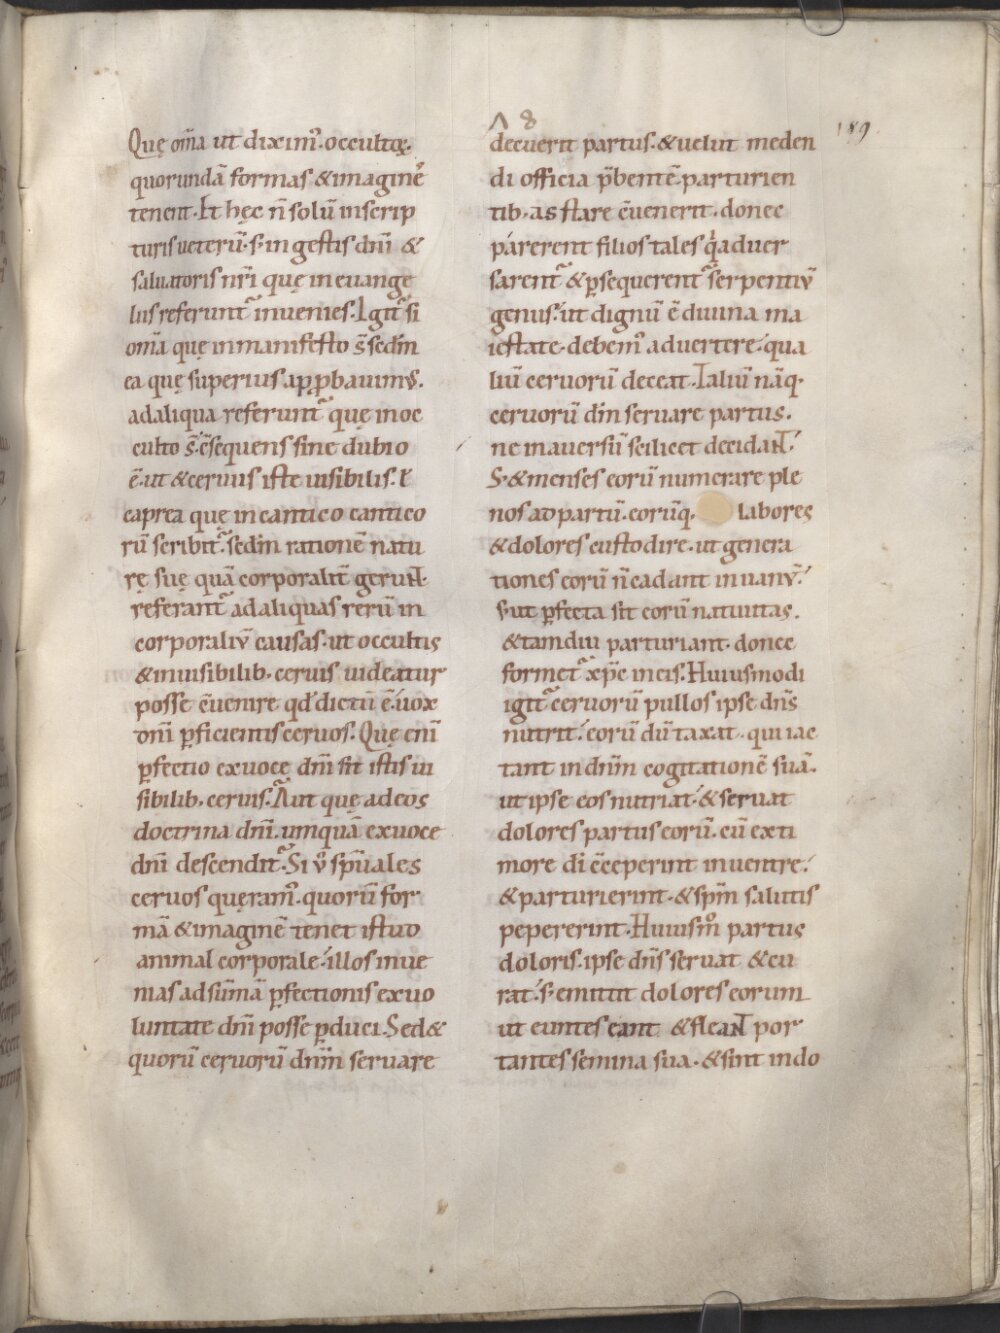 Λ 8
189
Quę om̄a ut diximꝰ occultoꝝ·
quorundā formas & imaginē
tenent· Et hęc n̄ solū inscrip
turis ueterū· s; in gestis dn̄i &
saluatoris nr̄i quę in euange
liis referunt᷑ inuenies· Igit᷑ si
om̄a quę in manifesto s̄ sedm̄
ea quę superius app̱bauimꝰ·
ad aliqua referunt᷑ quę in oc
culto s̄· c̄sequens sine dubio
ē· ut & ceruus iste uisibilis· ł
caprea quę in cantico cantico
rū scribit᷑· sedm̄ rationē natu
rę suę quā corporalit̄ gerunt·
referant᷑ ad aliquas rerū in
corporaliū causas· ut occultis
& inuisibilib· ceruis uideatur
posse ēuenire qd̄ dictū ē· uox
dn̄i p̱ficientis ceruos· Quę eni̅
p̱fectio ex uoce dn̄i sit istis ui
sibilib· ceruis· Aut quę ad eos
doctrina dn̄i umquā ex uoce
dn̄i descendit᷑· Si ū sp̄uales
ceruos queramꝰ· quorū for
mā & imaginē tenet istud
animal corporale· illos inue
nias ad sūmā p̱fectionis ex uo
luntate dn̄i posse p̱duci· Sed &
quorū ceruorū dn̄m seruare
decuerit partus· & uelut meden
di officia p̄bentē parturien
tib· astare c̄uenerit· donec
párerent filios tales qͥ aduer
sarent᷑ & p̱sequerent᷑ serpentiū
genus· ut dignū ē diuina ma
iestate· debemꝰ aduertere· qua
liū ceruorū deceat· Taliū nāq·
ceruorū dn̄m seruare partus·
ne in auersū scilicet decidant·
S; & menses eorū numerare ple
nos ad partū· eorūq· labores
& dolores custodire· ut genera
tiones eorū n̄ cadant in uanū·
s; ut p̱fecta sit eorū natiuitas·
& tamdiu parturiant· donec
formet᷑ xp̄c in eis· Huiusmodi
igit᷑ ceruorū pullos ipse dn̄s
nutrit· eorū dū taxat· qui iac
tant in dn̄m cogitationē suā·
ut ipse eos nutriat· & seruat
dolores partus eorū· cū ex ti
more di̅ c̄ceperint in uentre·
& parturierint· & sp̄m salutis
pepererint· Huiusm̊ partus
doloris· ipse dn̄s seruat & cu
rat· s; emittit dolores eorum
ut euntes eant & fleant por
tantes semina sua· & sint in do